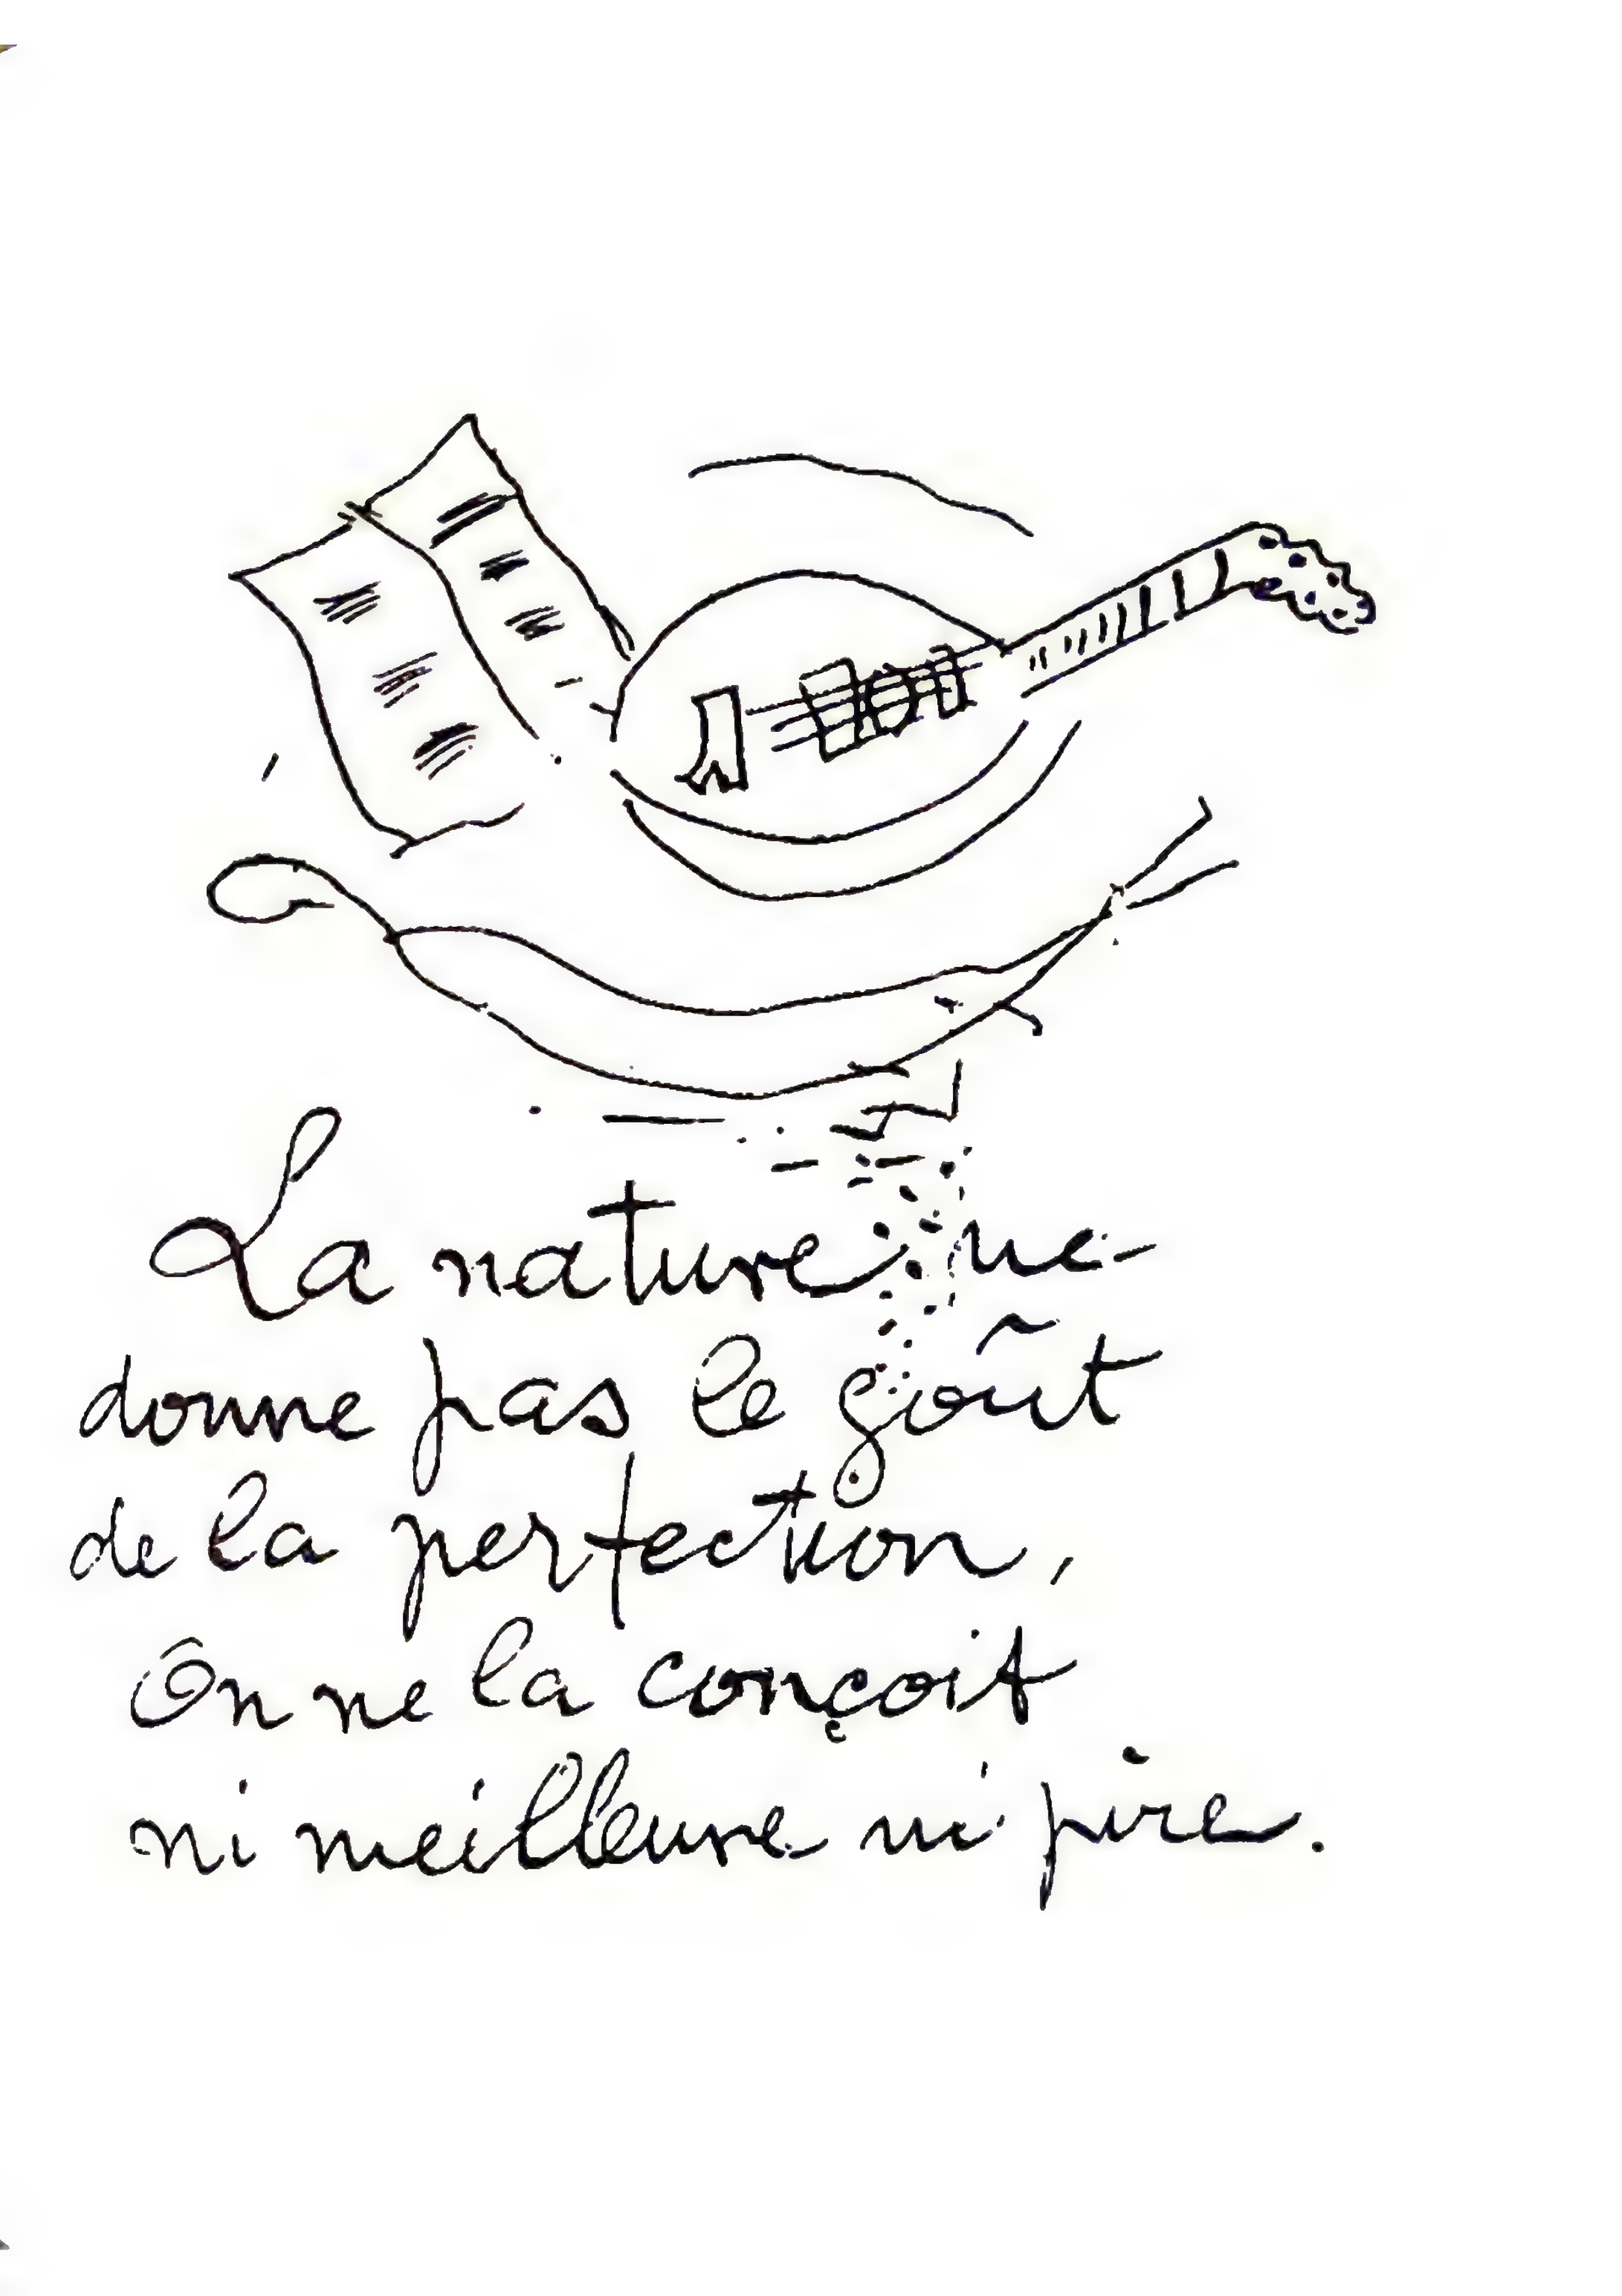 La nature ne
donne pas le goût
de la perfection,
On ne la conçoit
ni meilleure ni pire.